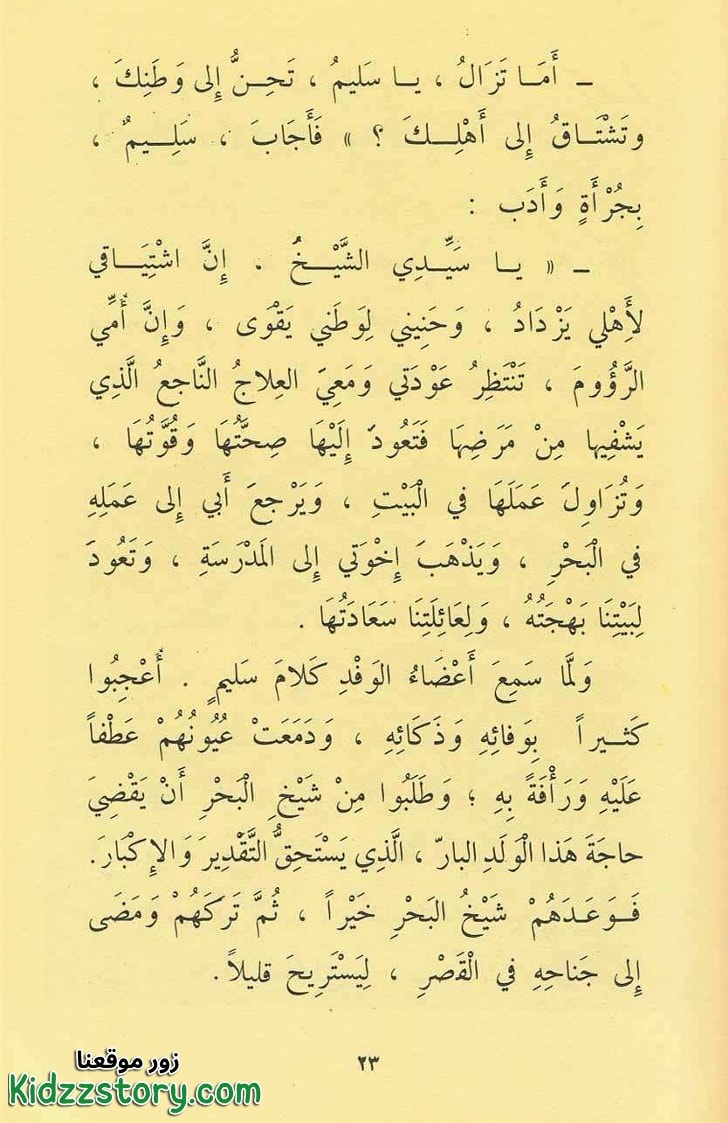 ـ أَمَـا تَزَالُ ، يـا سَليمُ ، تَحِـنُّ إِلى وَطَنِكَ ،
وتَشْتَـاقُ إِلى أَهْلِـكَ ؟ » فَأَجَابَ ، سَلِـيمٌ ،
بِجُرْأَةٍ وَأَدَب :
ـ « يـا سَيِّـدِي الشَّيْـخُ . إِنَّ اشْتِيَـاقي
لأَهْلي يَزْدَادُ ، وَحَنِيني لِوَطَني يَقْوَى ، وَإِنَّ أُمِّي
الرَّؤُومَ ، تَنْتَظِرُ عَوْدَتي وَمَعِيَ العِلاجُ النَّاجعُ الَّذِي
يَشْفِيها مِنْ مَرَضِهَا فَتَعُودَ إِلَيْهَا صِحَّتُهَا وَقُوَّتُهَا ،
وَتُزَاوِلَ عَمَلَهَا في الْبَيْتِ ، وَيَرْجعَ أَبي إِلى عَمَلِهِ
في الْبَحْرِ ، وَيَذْهَبَ إِخْوَتي إِلى المَدْرَسَةِ ، وَتَعُودَ
لِبَيْتِنَا بَهْجَتُهُ ، وَلِعَائِلَتِنَا سَعَادَتُهَا .
وَلمَّا سَمِعَ أَعْضَاءُ الوَفْدِ كَلامَ سَليمٍ . أُعْجِبُوا
كَثـيراً بِوَفائِهِ وَذَكَائِهِ ، وَدَمَعَتْ عُيُونُهُمْ عَطْفاً
عَلَيْهِ وَرَأْفَةً بِهِ ؛ وَطَلَبُوا مِنْ شَيْخِ الْبَحْرِ أَنْ يَقْضِيَ
حاجَةَ هَذا الْوَلَدِ البارّ ، الَّذِي يَسْتَحِقُّ التَّقْدِيرَ وَالإِكْبَارَ.
فَـوَعَـدَهُمْ شَيْخُ البَحْرِ خَيْراً ، ثُمَّ تَرَكَهُمْ وَمَضَى
إِلى جَناحِهِ في الْقَصْرِ ، لِيَسْتَرِيحَ قليلاً.
٢٣
زور موقعنا
Kidzzstory.com